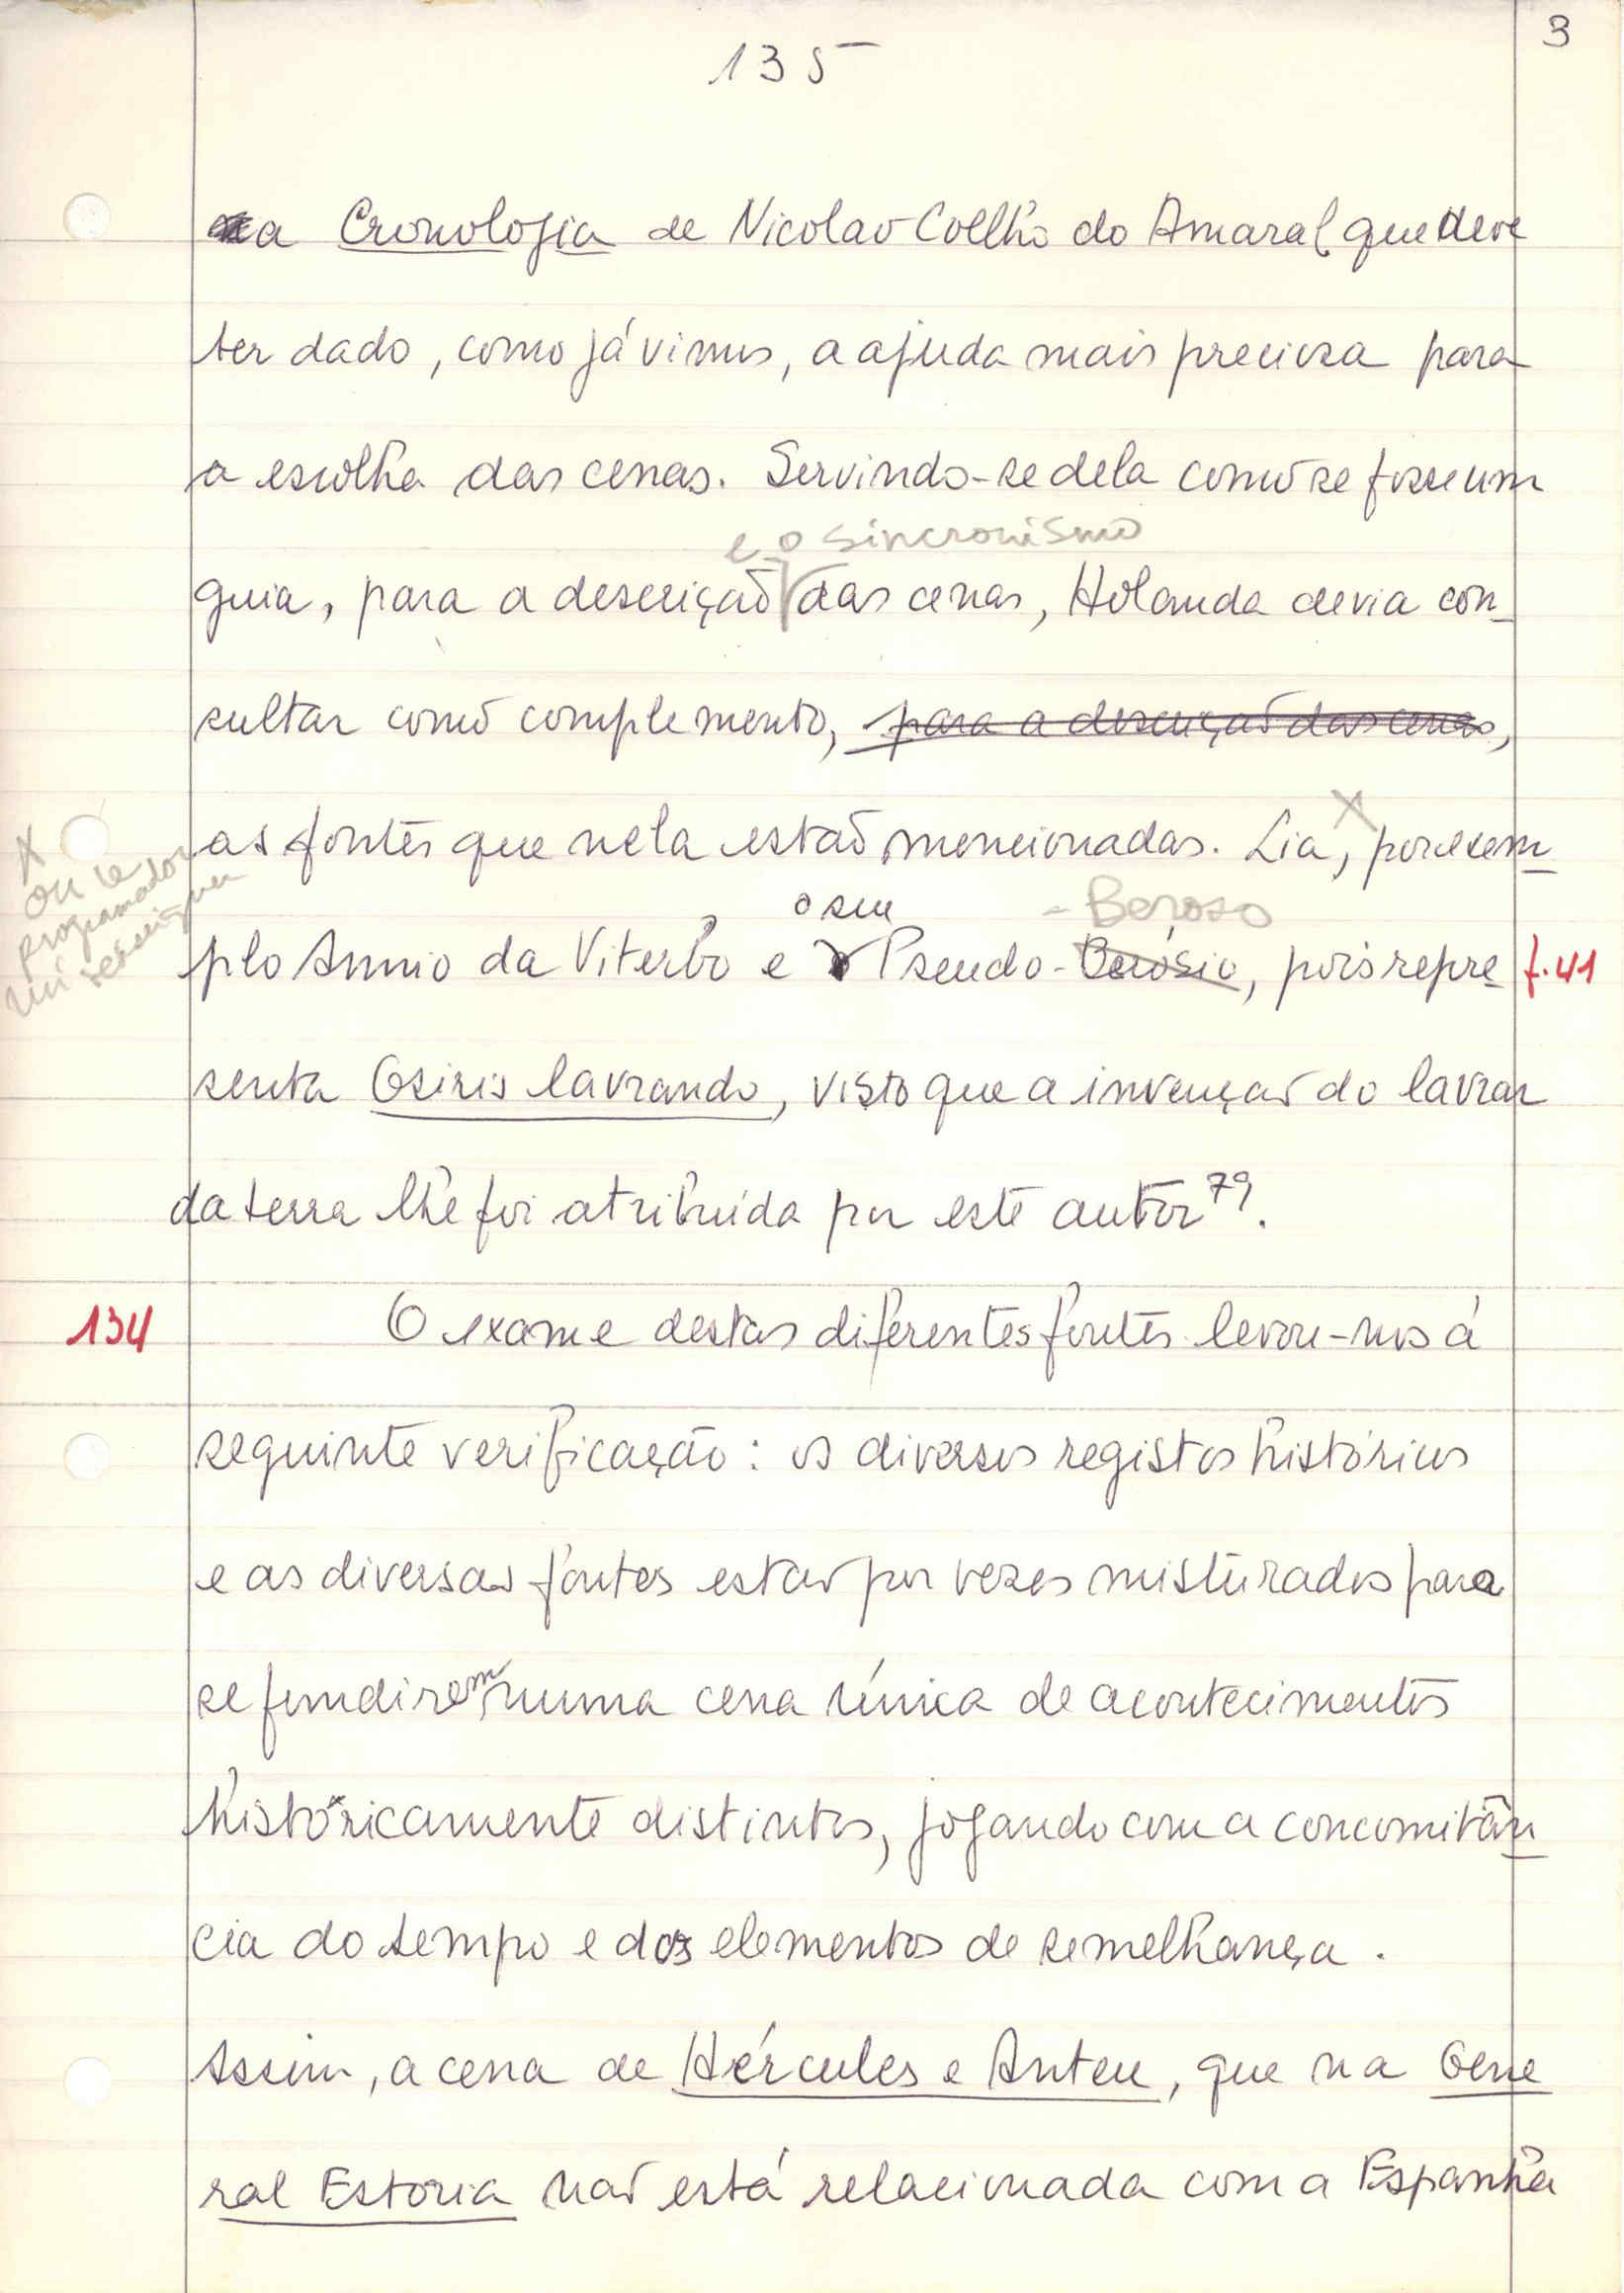 3
135
a Cronologia de Nicolao Coelho do Amaral que deve
ter dado, como já vimos, a ajuda mais preciosa para
a escolha das cenas. Servindo-se dela como se fosse um
e o sincronismo
guia, para a descrição das cenas, Holanda devia con-
sultar como complemento, para a descrição das cenas,
as fontes que nela estão mencionadas. Lia, por exem-
X
X
ou le
programador
o seu
- Beroso
plo Annio da Viterbo e o Pseudo-Berósio, pois repre-
f. 41
senta Osiris lavrando, visto que a invenção do lavrar
da terra lhe foi atribuída por este autor 79.
134
O exame destas diferentes fontes levou-nos à
seguinte verificação: os diversos registos históricos
e as diversas fontes estão por vezes misturados para
se fundirem numa cena única de acontecimentos
históricamente distintos, jogando com a concomitân-
cia do tempo e dos elementos de semelhança.
Assim, a cena de Hércules e Anteu, que na Gene
ral Estoria não está relacionada com a Espanha